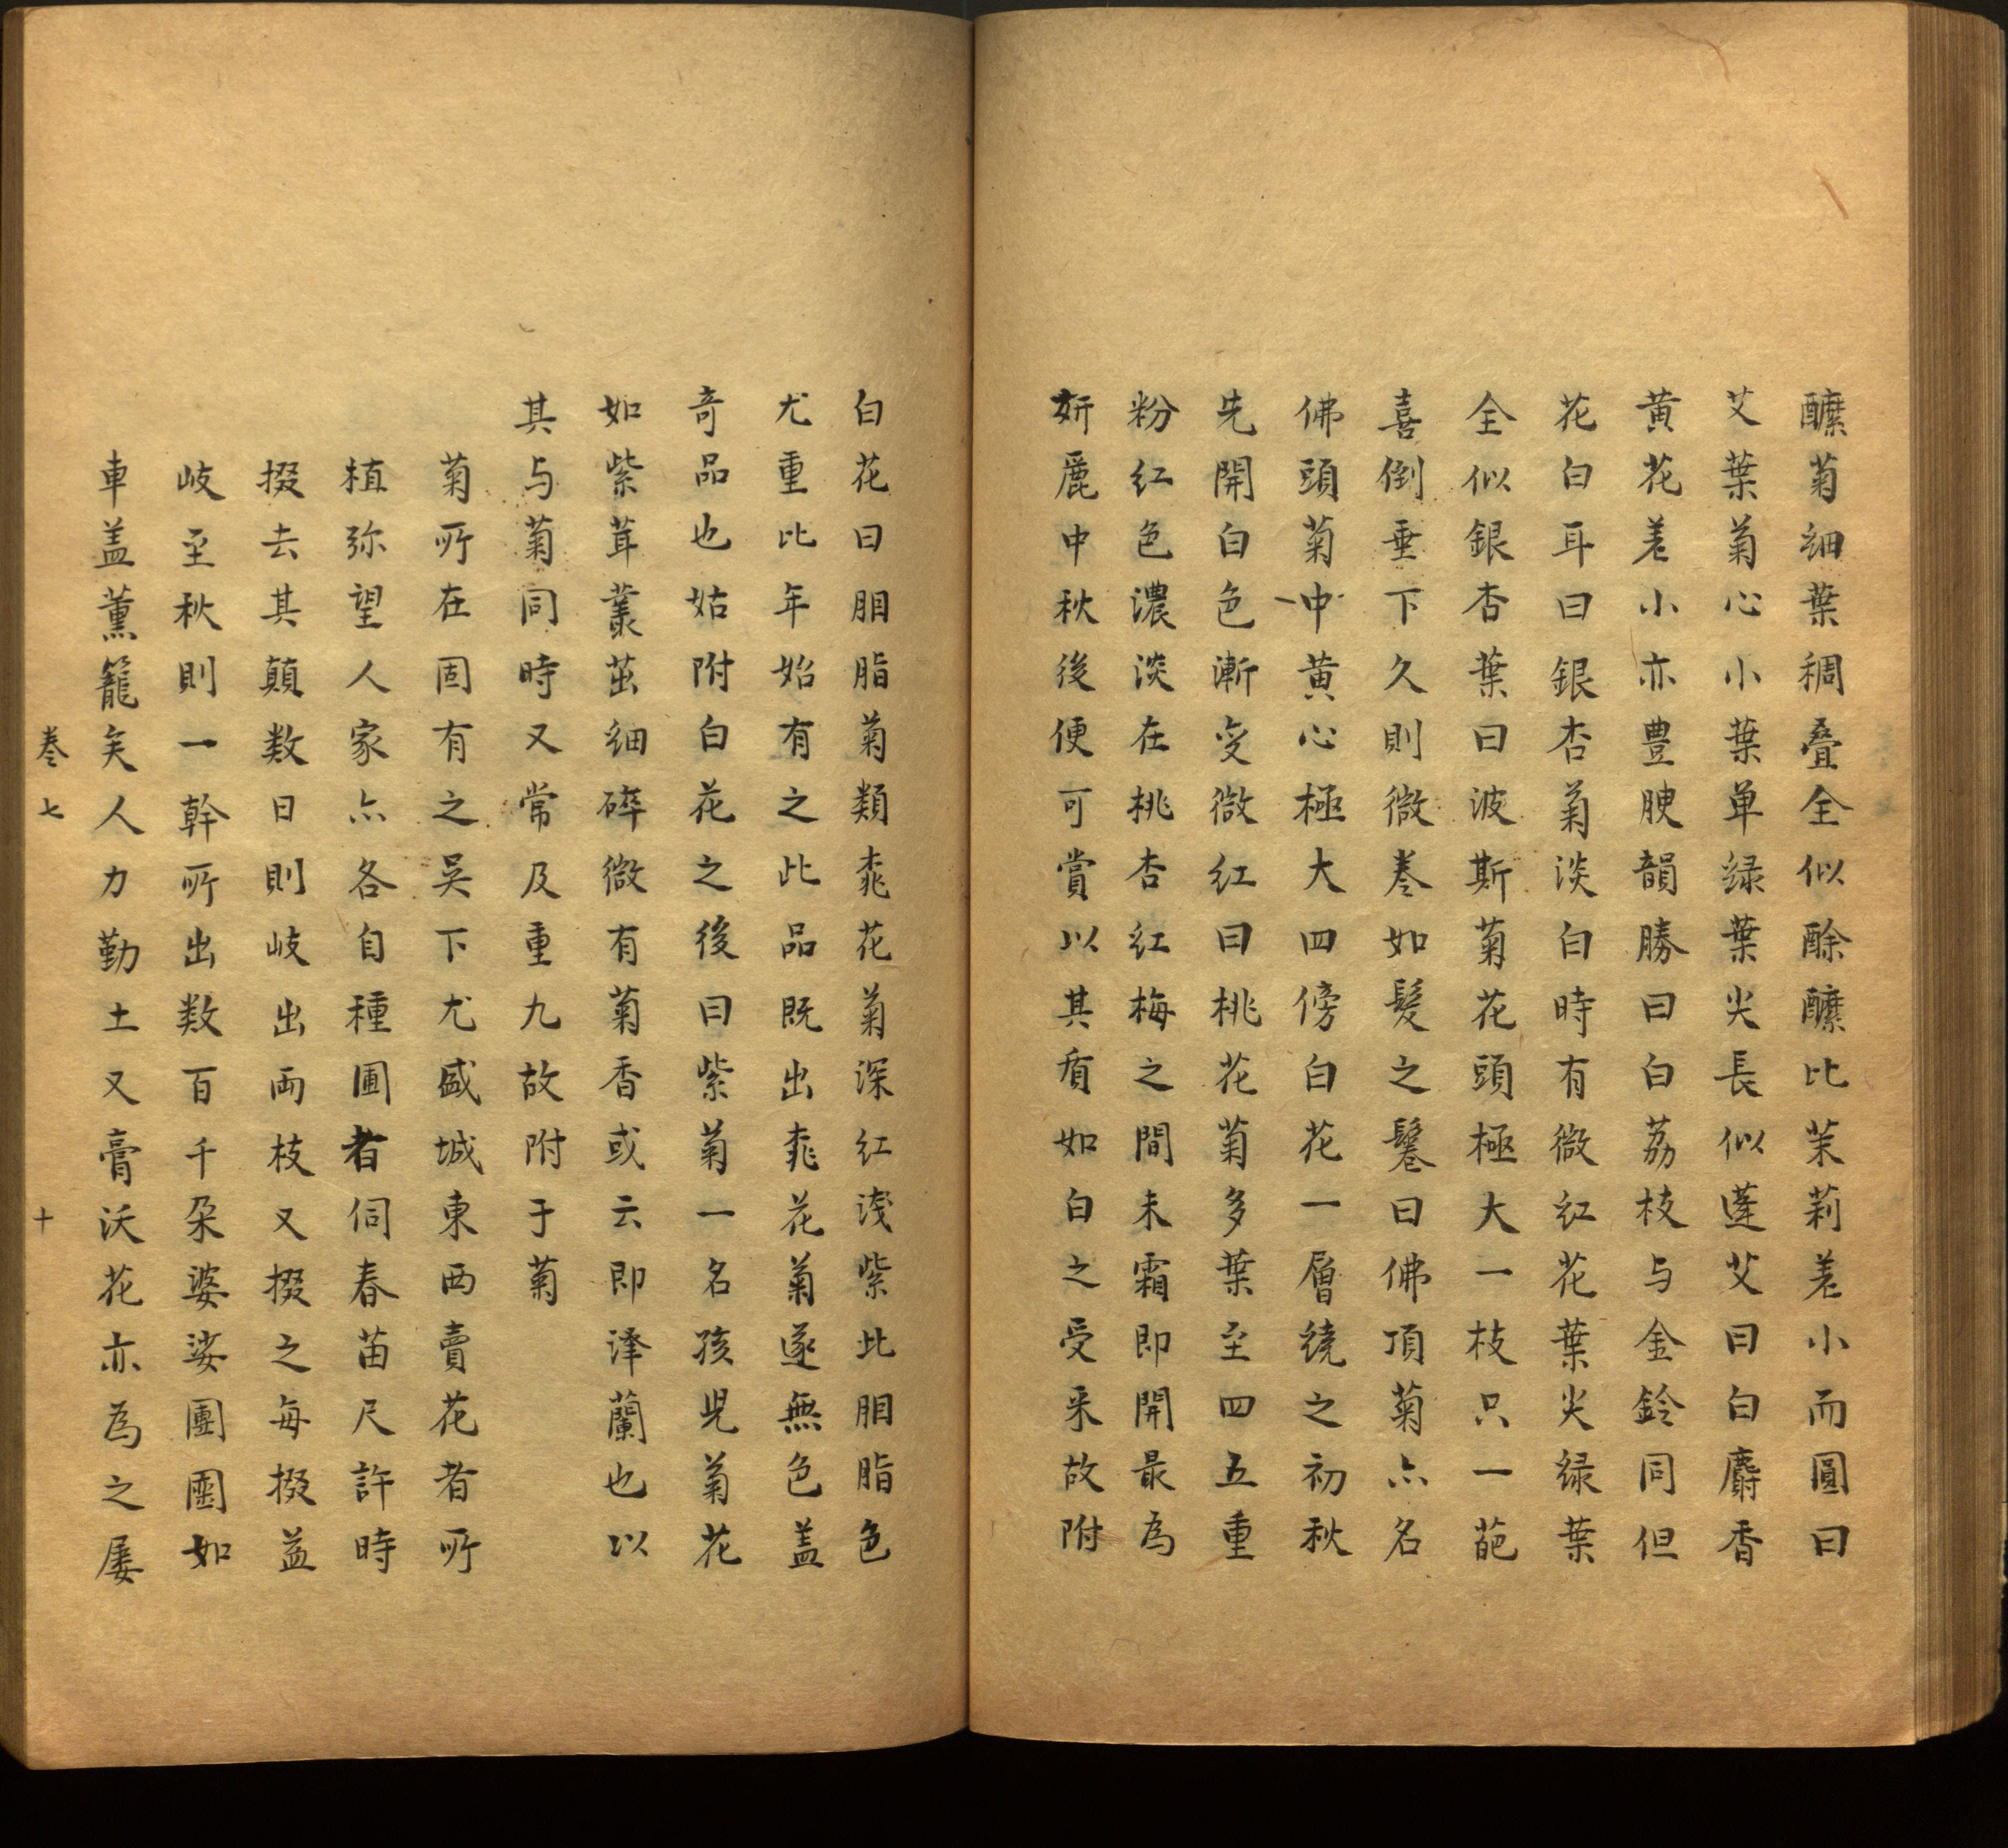 醾菊細葉稠叠全似酴醾比茉莉差小而圓曰
艾葉菊心小葉单緑葉尖長似蓬艾曰白麝香
黄花差小亦豊腴韻勝曰白荔枝与金鈴同但
花白耳曰銀杏菊淡白時有微紅花葉尖緑葉
全似銀杏葉曰波斯菊花頭極大一枝只一葩
喜倒垂下久則微巻如髮之鬈曰佛頂菊亦名
佛頭菊中黄心極大四傍白花一層繞之初秋
先開白色漸变微紅曰桃花菊多葉至四五重
粉紅色濃淡在桃杏紅梅之間未霜即開最為
妍麗中秋後便可賞以其質如白之受采故附
白花曰胭脂菊類桃花菊深紅浅紫比胭脂色
尤重比年始有之此品既出桃花菊遂無色盖
奇品也姑附白花之後曰紫菊一名孩児菊花
如紫茸叢茁細碎微有菊香或云即泽蘭也以
其与菊同時又常及重九故附于菊
菊所在固有之吴下尤盛城東西賣花者所
植弥望人家亦各自種圃者伺春苗尺許時
掇去其顛数日則岐出両枝又掇之每掇益
岐至秋則一幹所出数百千朶婆娑團圞如
車盖薰籠矣人力勤土又膏沃花亦為之屡
巻七
十